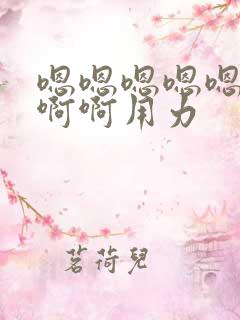 嗯嗯嗯嗯嗯
啊啊用力
茗荷兒